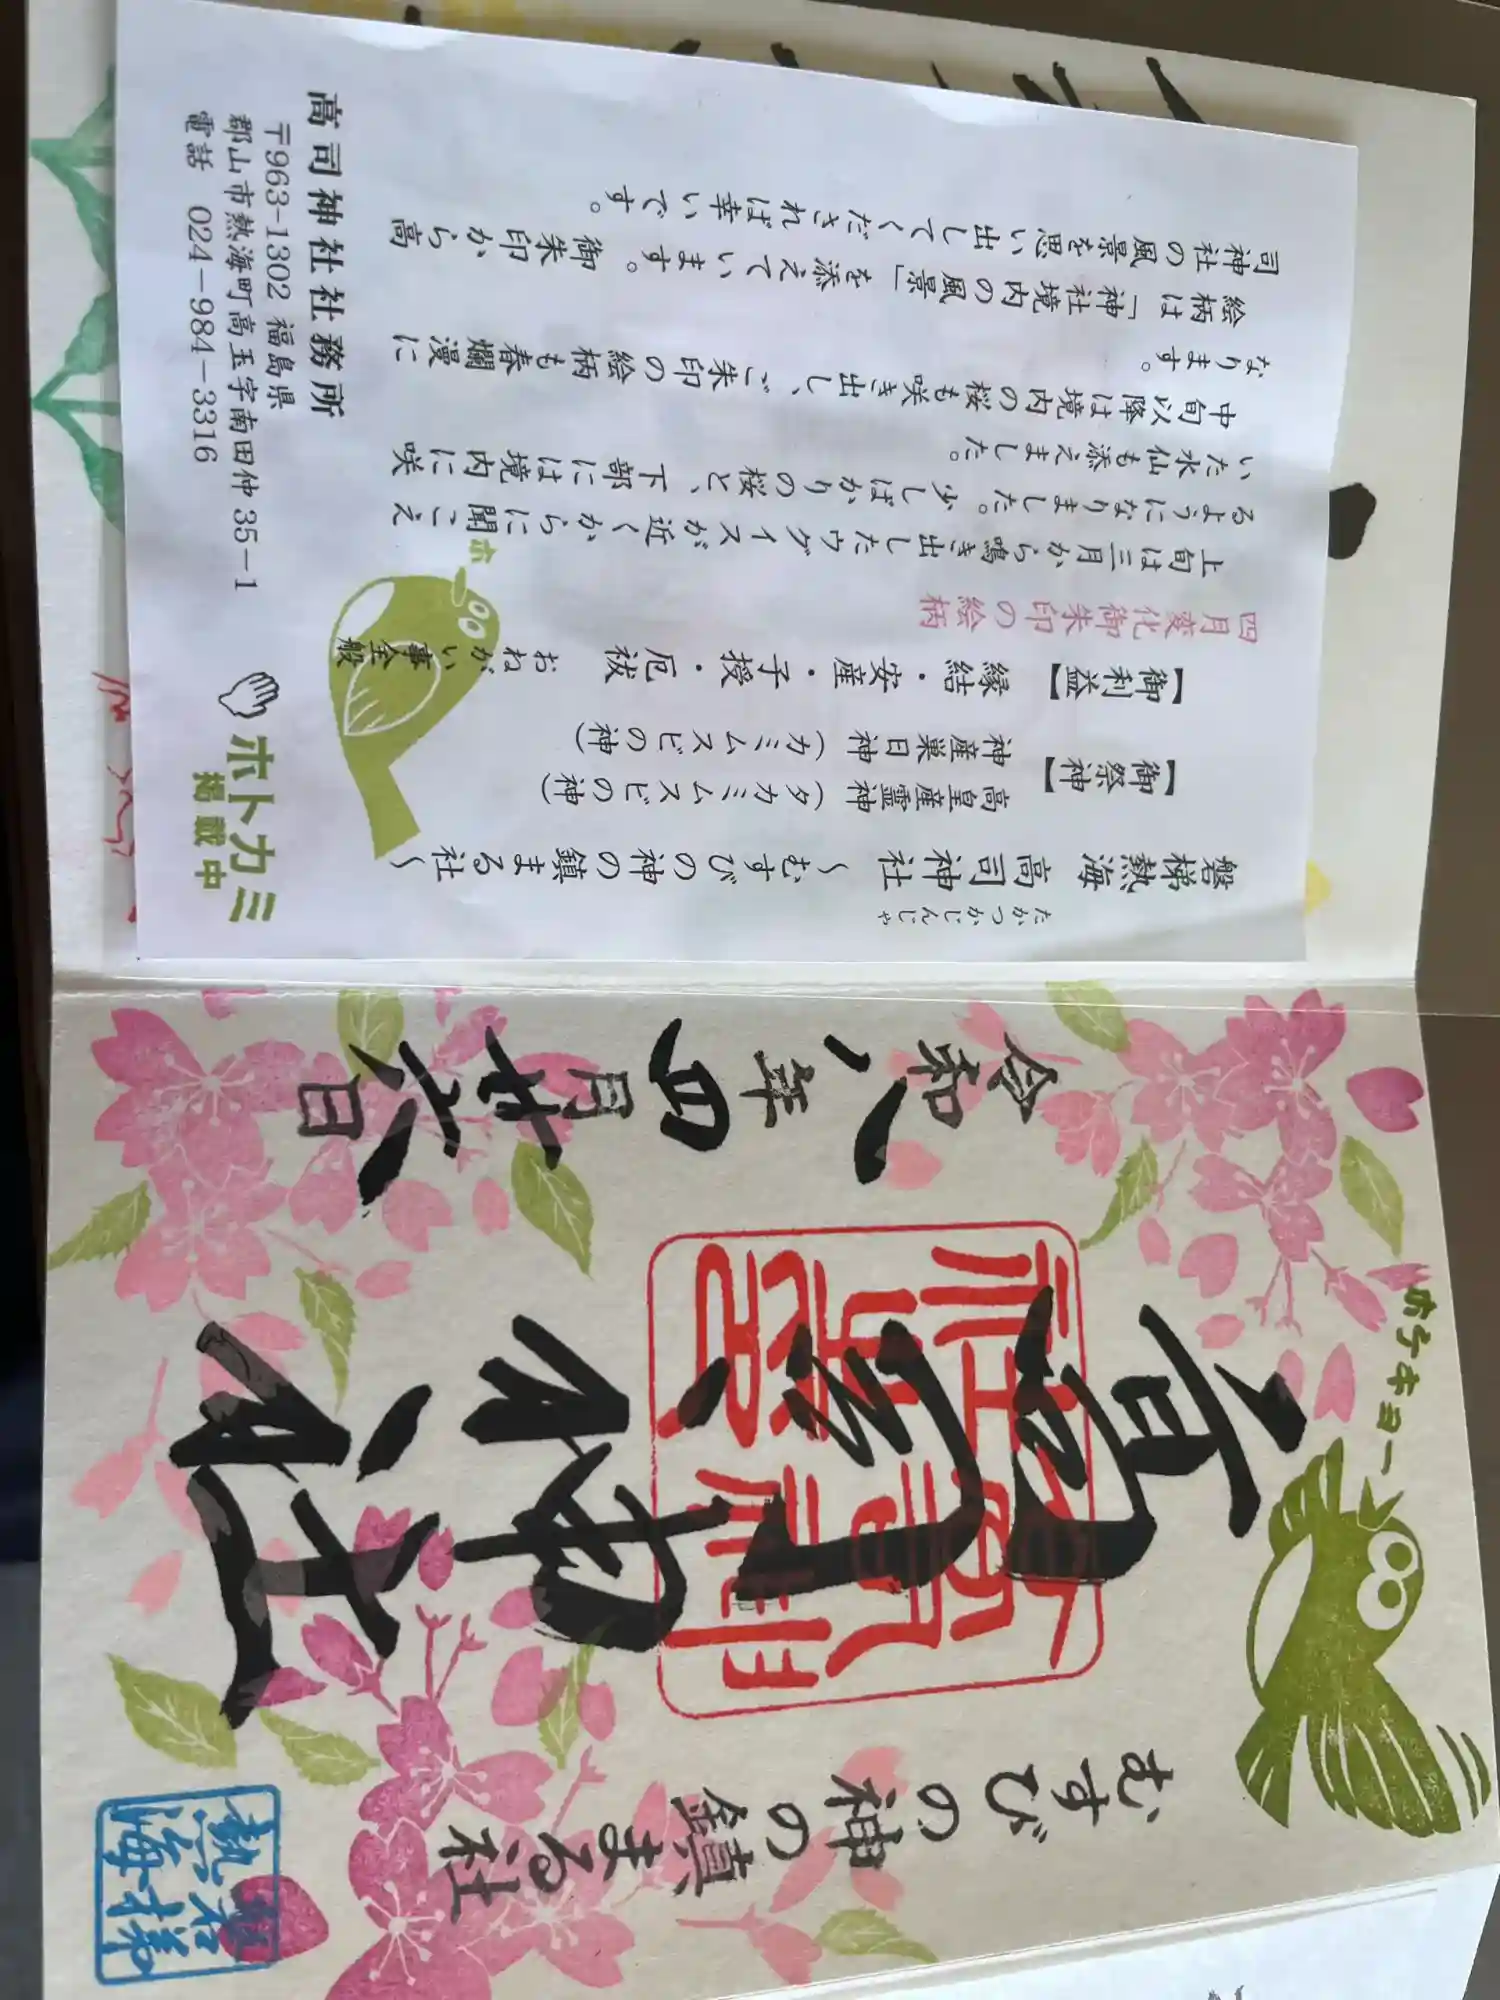 たかつかじんじゃ
磐梯熱海 高司神社 〜むすびの神の鎮まる社〜
【御祭神】
高皇産霊神（タカミムスビの神）
神産巣日神（カミムスビの神）
【御利益】縁結・安産・子授・厄祓 おねがい事全般
四月変化御朱印の絵柄
上旬は三月から鳴き出したウグイスが近くからに聞こえ
るようになりました。少しばかりの桜と、下部には境内に咲
いた水仙も添えました。
中旬以降は境内の桜も咲き出し、ご朱印の絵柄も春爛漫に
なります。
絵柄は「神社境内の風景」を添えています。御朱印から高
司神社の風景を思い出してくだされば幸いです。
ホ
高司神社社務所
〒963-1302 福島県
郡山市熱海町高玉字南田仲 35-1
電話 024-984-3316
ホトカミ
掲載中
ホケキョー
むすびの神の鎮まる社
高司神社
令和八年四月廿六日
磐梯
熱海